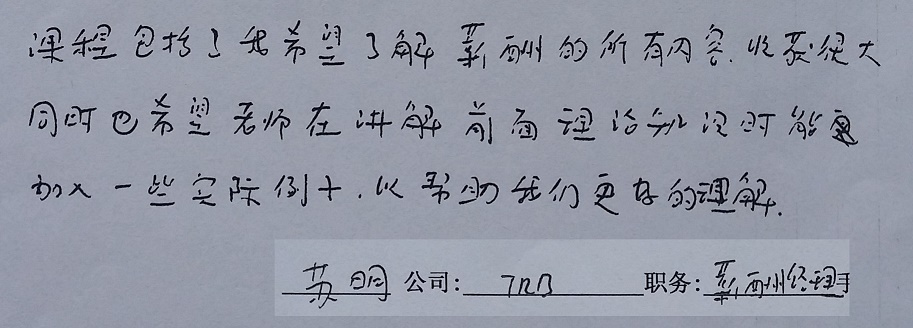 课程包括了我希望了解薪酬的所有内容.收获很大
同时也希望老师在讲解前面理论知识时能更
加入一些实际例子.以帮助我们更好的理解.
苏明 公司: 职务: 薪酬经理